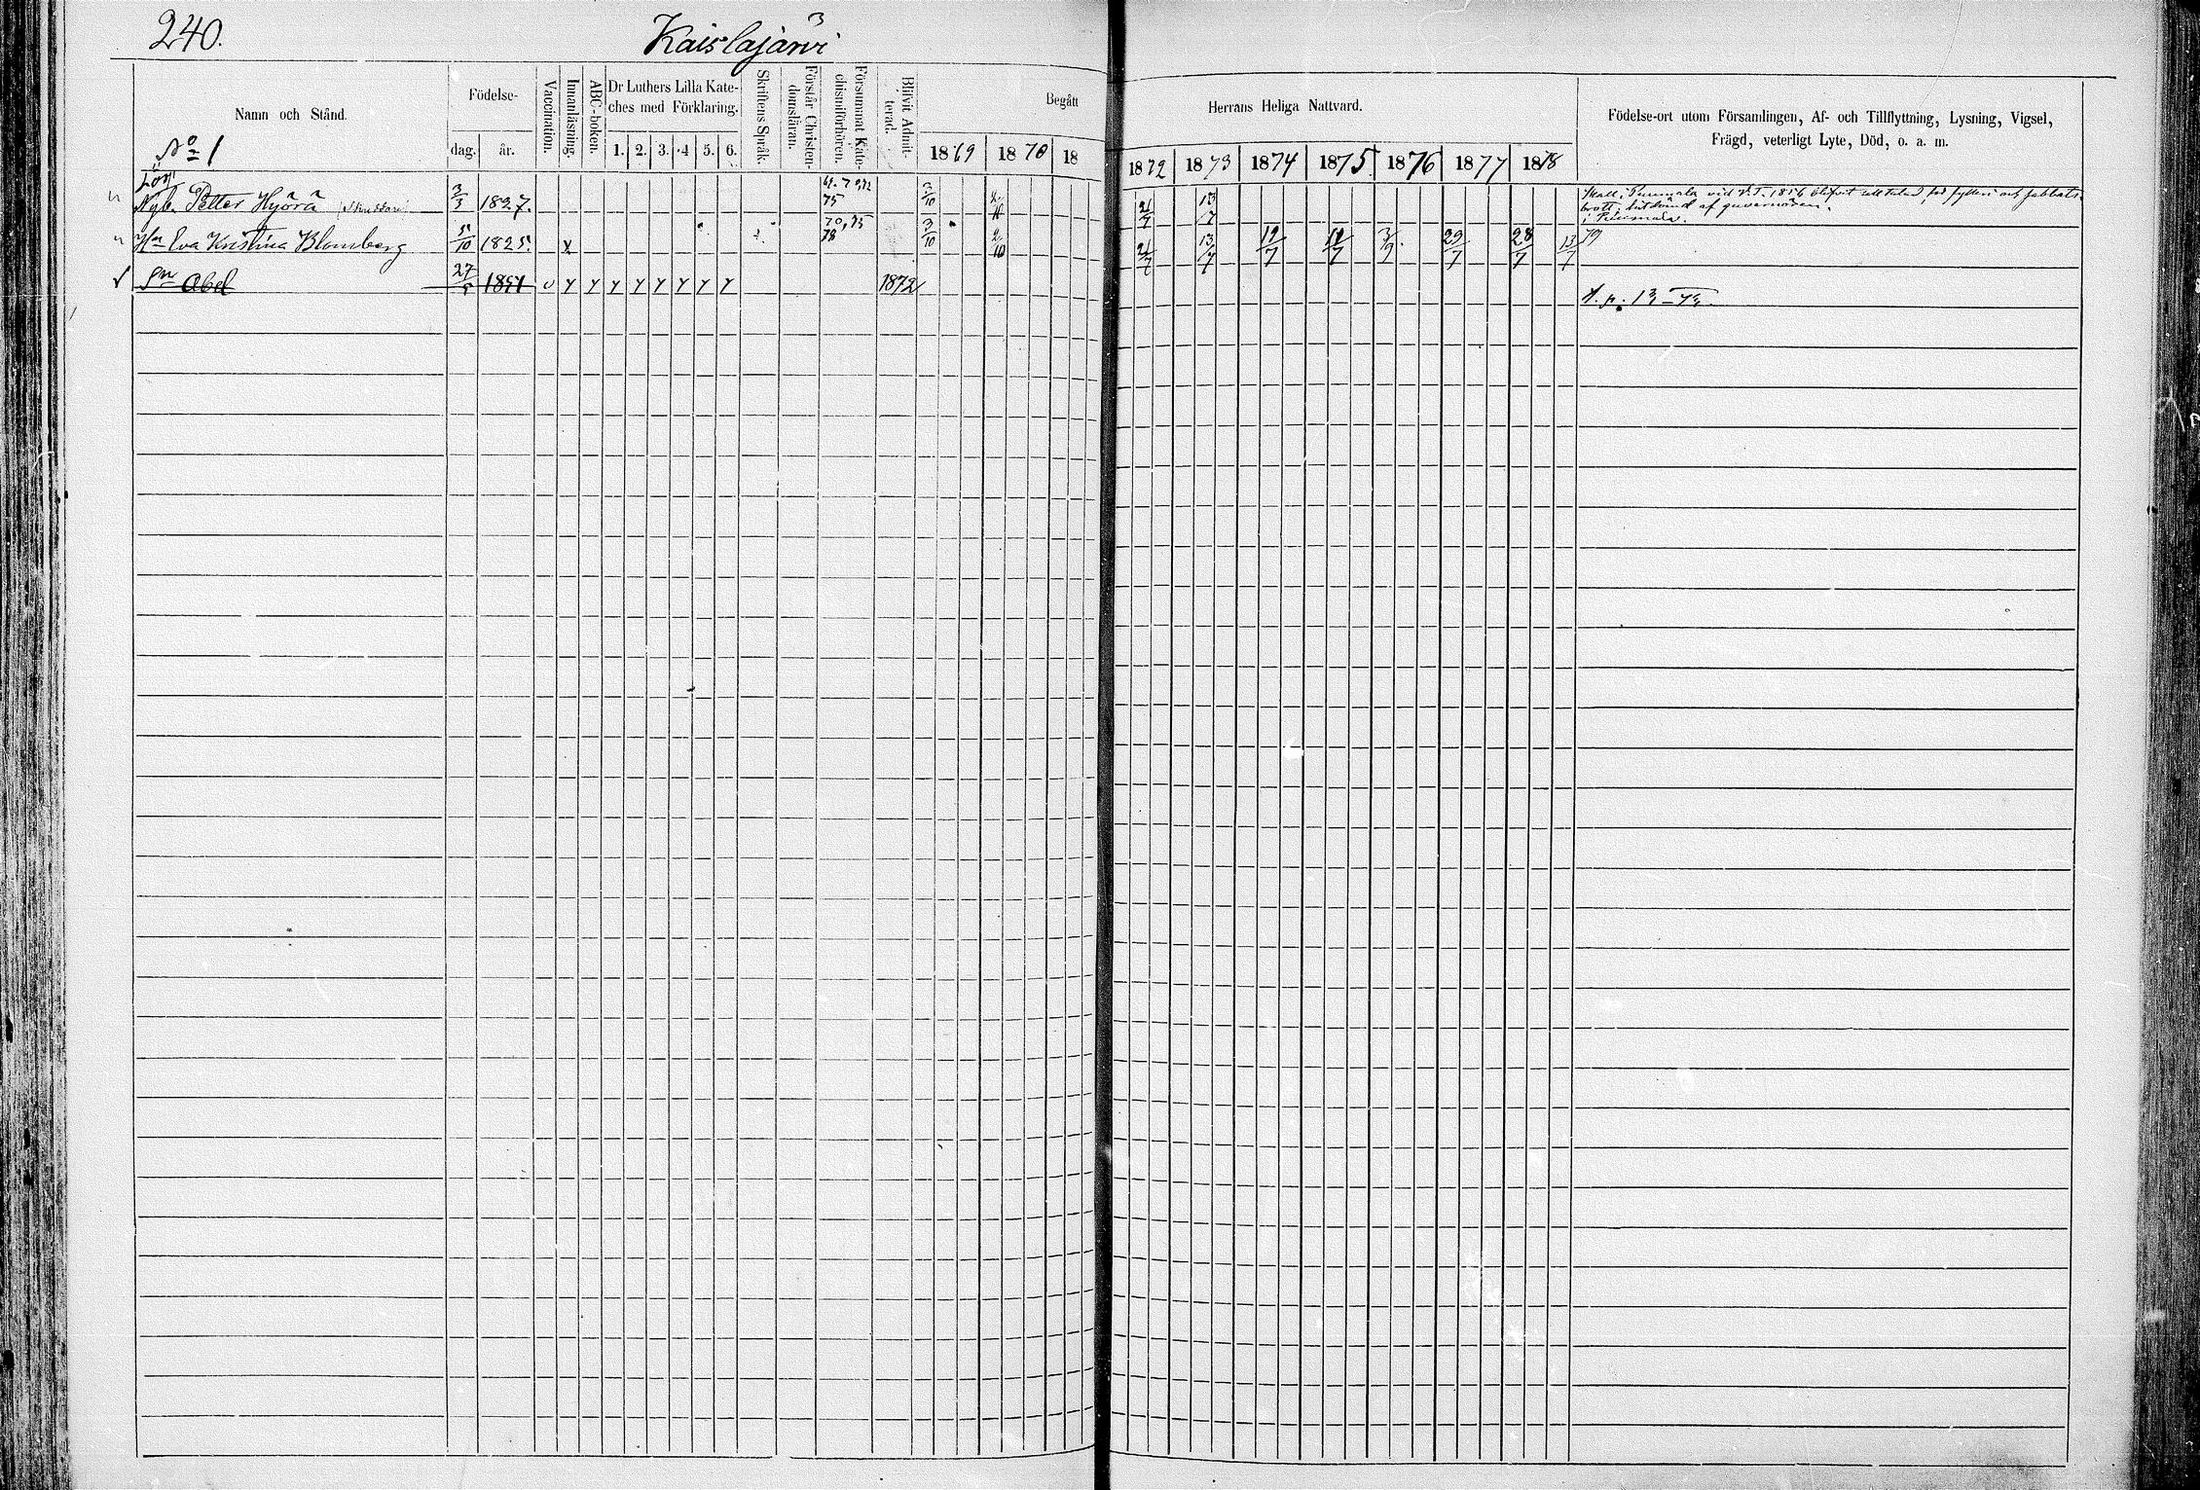 240.
Kaislajärvi
Namn och Stånd.
Födelse-
dag.
år.
Vaccination.
Innanläsning.
ABC-boken.
Dr Luthers Lilla Kate-
ches med Förklaring.
1. 2. 3. 4 5. 6.
Skriftens Språk.
Förstår Christen-
domsläran.
Försummat Kate-
chismiförhören.
Blifvit Admit-
terad.
Begått
1869 1870 18
Herrans Heliga Nattvard.
1872 1873 1874 1875. 1876 1877 1878
Födelse-ort utom Församlingen, Af- och Tillflyttning, Lysning, Vigsel,
Frägd, veterligt Lyte, Död, o. a. m.
No 1
Nyb. Petter Hyörä 3/3 1827. 75 3/10 21/7 13/7
Hn Eva Kristina Blomberg 5/10 1825. x 70, 75 78 3/10 2/10 21/7 13/7 12/7 12/7 3/9 29/7 28/7 13/7 79
Sn Abel 27/5 1851 v y y y y y y y y 1872